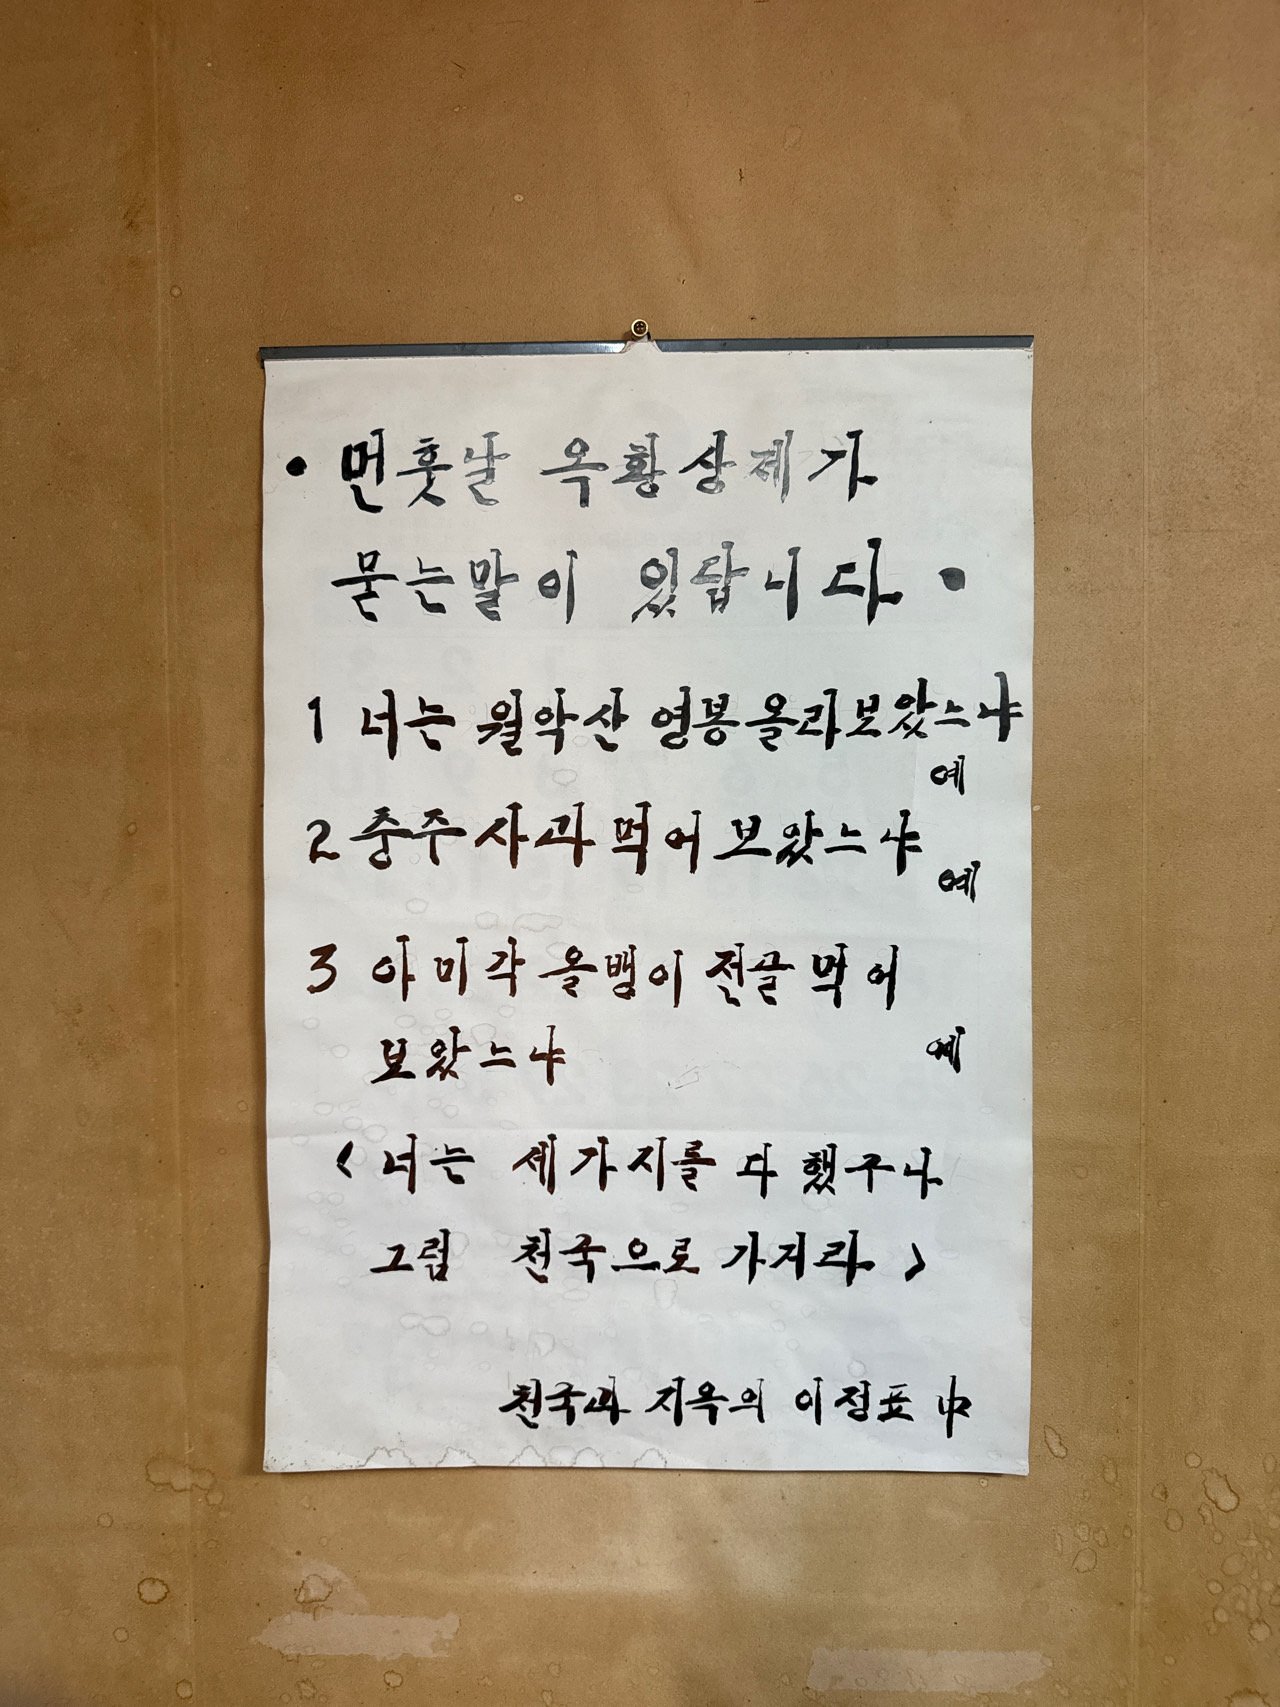 • 먼훗날 옥황상제가
묻는말이 있답니다 •
1 너는 월악산 영봉올라보았느냐
예
2 충주사과 먹어 보았느냐
예
3 아미각 올뱅이 전골 먹어
보았느냐 예
< 너는 세가지를 다 했구나
그럼 천국으로 가거라 >
천국과 지옥의 이정표 中